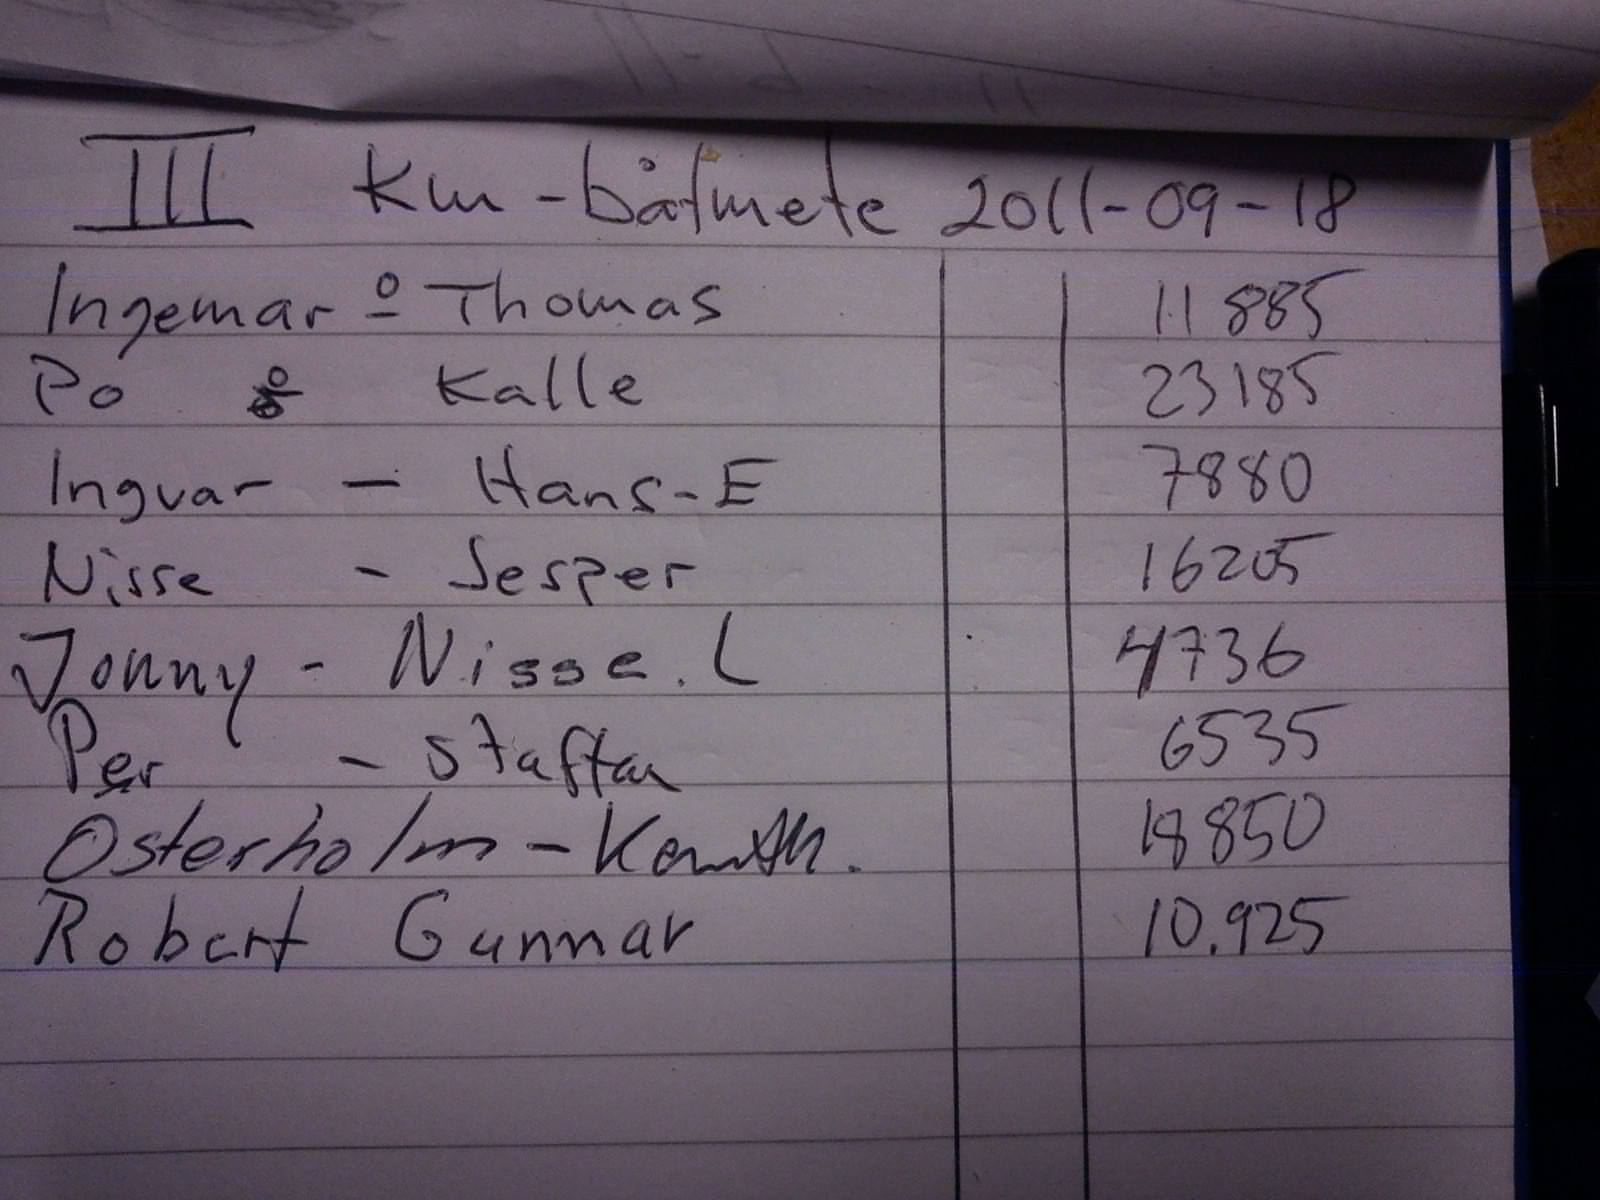 III Km-båtmete 2011-09-18
Ingemar o Thomas 11885
Po o Kalle 23185
Ingvar - Hans-E 7880
Nisse - Jesper 16205
Jonny - Nisse. L 4736
Per - Staffan 6535
Osterholm - 18850
Robert Gunnar 10.925